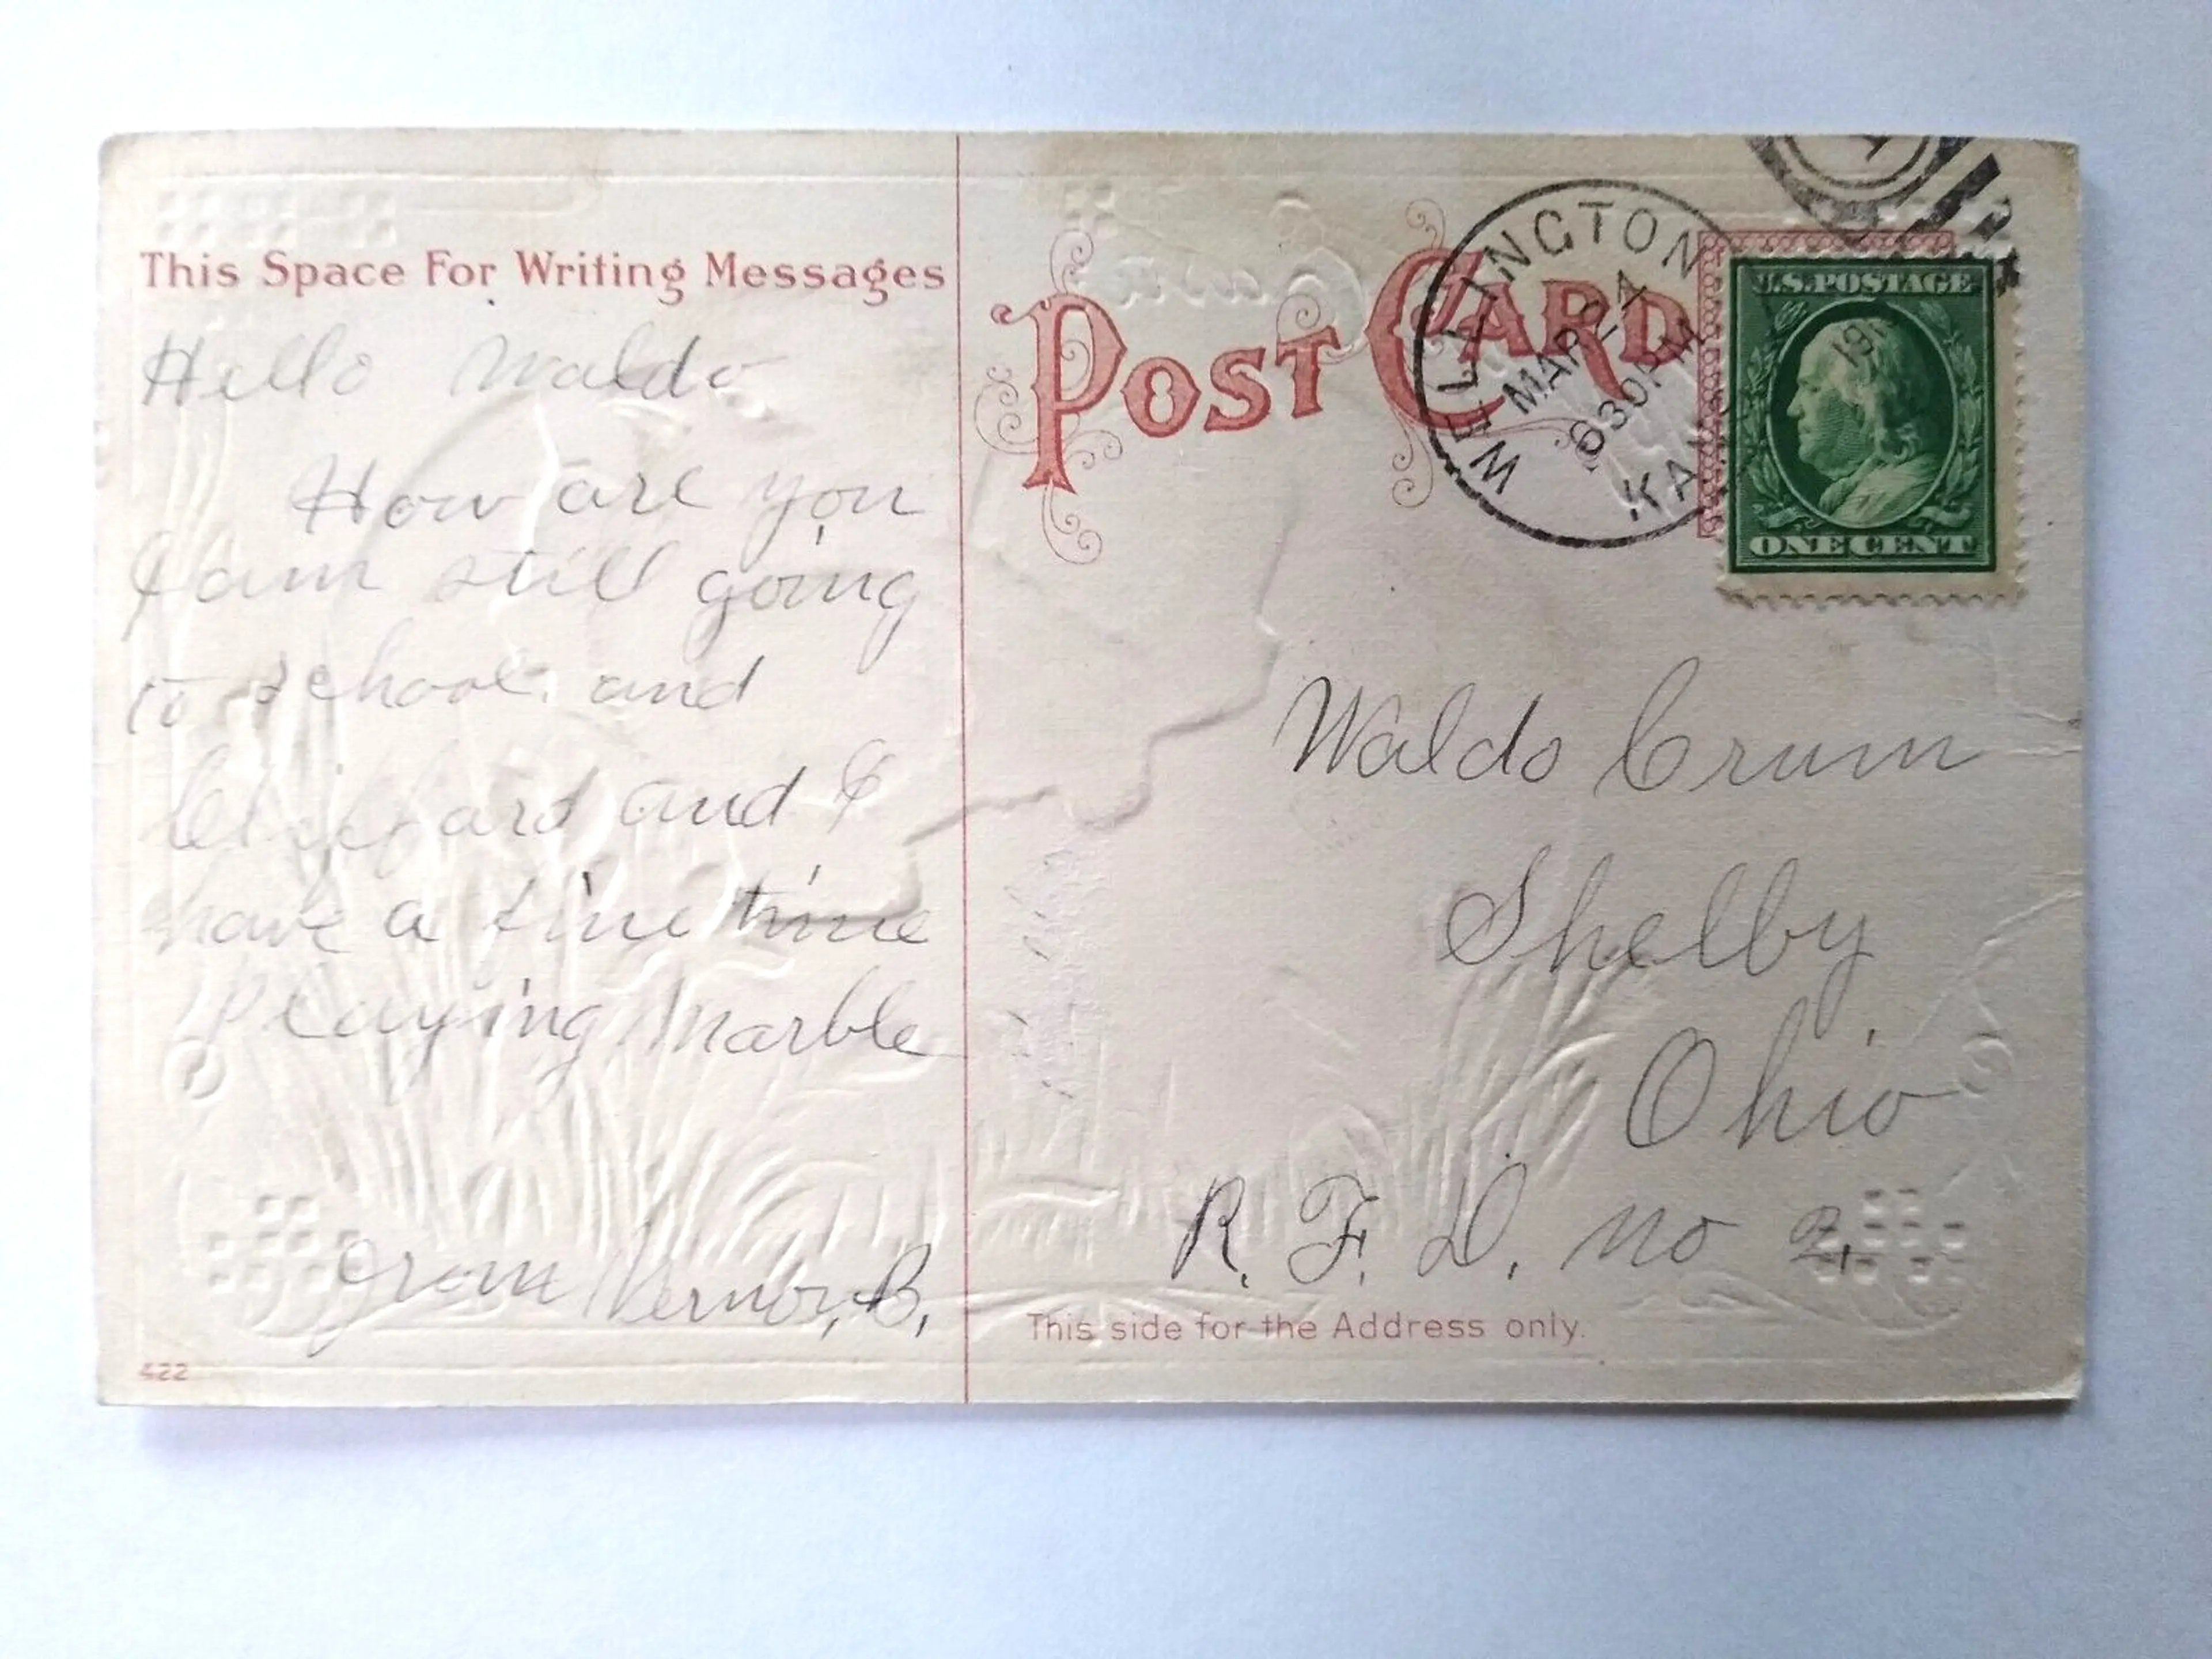 This Space For Writing Messages
Hello Waldo
How are you
I am still going
to school. and
Cliffard and I
have a fine time
Playing Marble
From Vernor, B,
422
POST CARD
WELLINGTON
MAR 24
630 PM
KAN
19
U.S. POSTAGE
ONE CENT
Waldo Crum
Shelby
Ohio
R. F. D. no 2,
This side for the Address only.